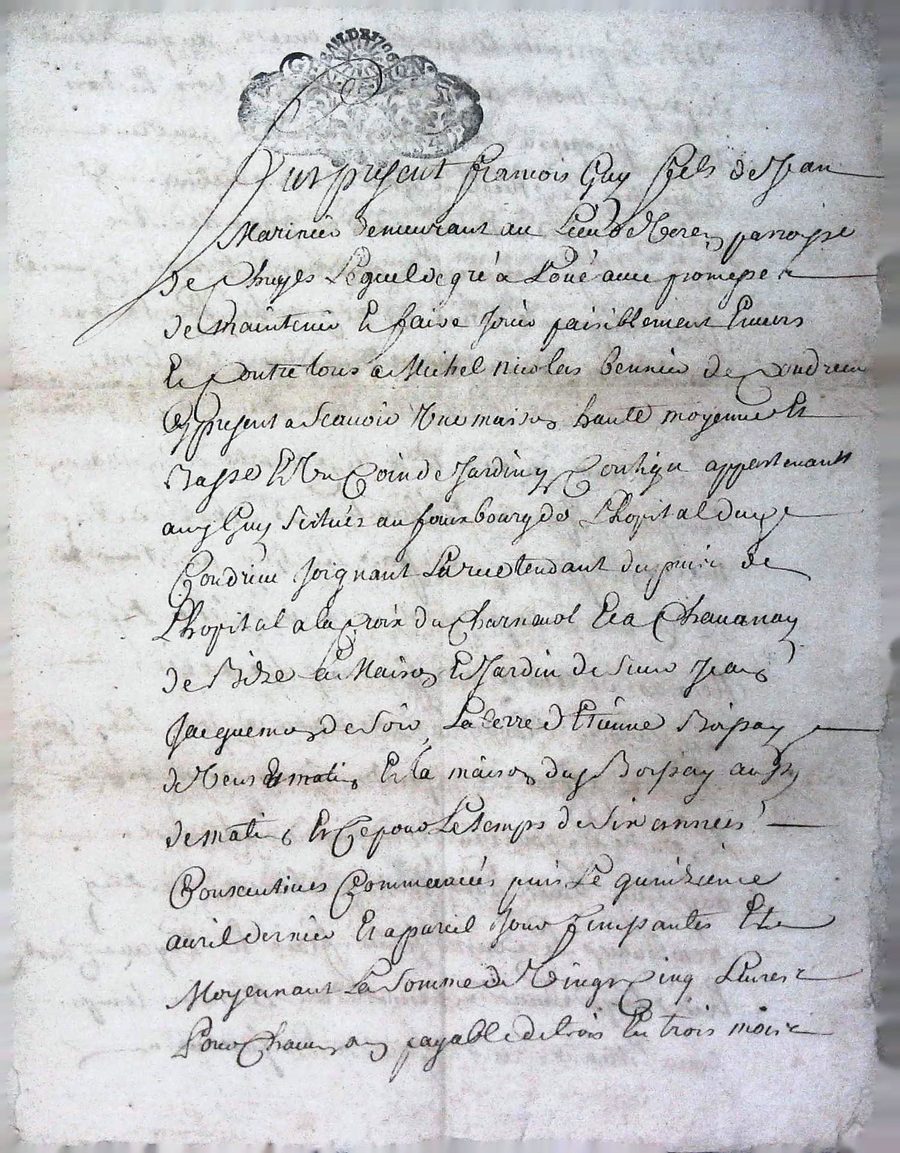 BAIL DE 1706
GEN DE ION
Fut present francois Guy fils de Jean
Marinier demeurant au Lieu de Veren parroisse
de Chuyes Lequel de gré a Loué avec promesse
de maintenir Et faire Jouir paisiblement Envers
Et Contre tous a Michel nicolas de Condrieu
Cy present a Scavoir Une maison haute moyenne Et
basse Et Un Coin de Jardin y Contigu appertenants
aud Guy Scitués au fauxbourg de L'hopital dud
Condrieu Joignant La rue tendant du puis de
L'hopital a la Croix du Charnevol Et a Chavanay
de bize La Maison Et Jardin de Sieur Jean
Jacquemon de Soir La terre d'Etienne Boissay
de Vent Et matin Et la maison dud Boissay aussy
de matin Et Ce pour Le temps de Six années
Consecutives Commencées puis Le quinzieme
avril dernier Et a pareil Jour finissantes Et
Moyennant La Somme de Vingt Cinq Livres
Pour Chacun an payable de trois En trois mois